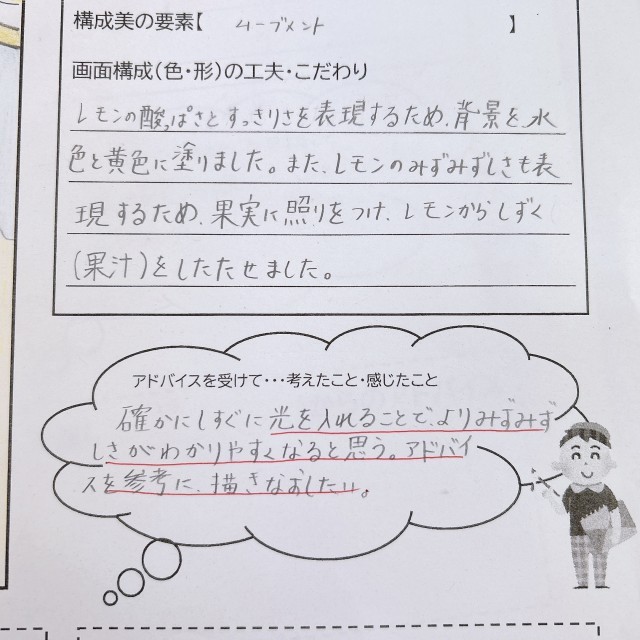 構成美の要素【 ムーブメント 】
画面構成(色・形)の工夫・こだわり
レモンの酸っぱさとすっきりさを表現するため、背景を、水
色と黄色に塗りました。また、レモンのみずみずしさも表
現するため、果実に照りをつけ、レモンからしずく
(果汁)をしたたせました。
アドバイスを受けて・・・考えたこと・感じたこと
確かにしずくに光を入れることで、よりみずみず
しさがわかりやすくなると思う。アドバイ
スを参考に、描きなおしたい。